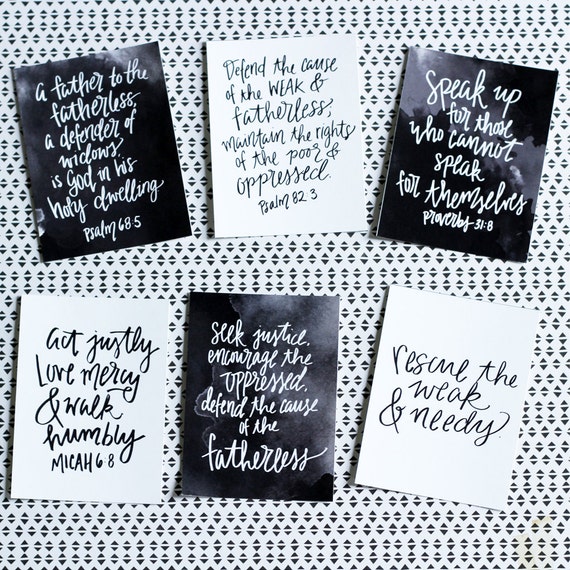 A father to the
fatherless,
a defender of
widows,
is God in his
holy dwelling
Psalm 68:5
Defend the cause
of the WEAK &
fatherless;
maintain the rights
of the poor &
oppressed.
Psalm 82:3
Speak up
for those
who cannot
speak
for themselves
Proverbs 31:8
act justly
Love mercy
& walk
humbly
MICAH 6:8
Seek justice,
encourage the
oppressed,
defend the cause
of the
fatherless
rescue the
weak
& needy.